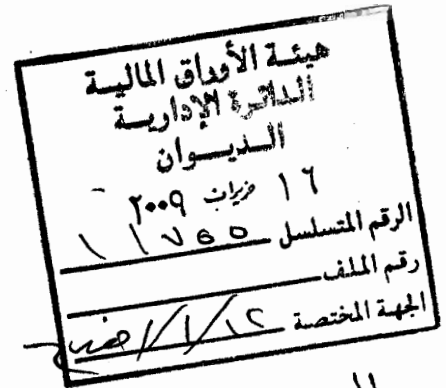 هيئة الأوراق المالية
الدائرة الإدارية
الديوان
١٦ حزيران ٢٠٠٩
الرقم المتسلسل ١١٧٥٥
رقم الملف
الجهة المختصة ١٢/١/١